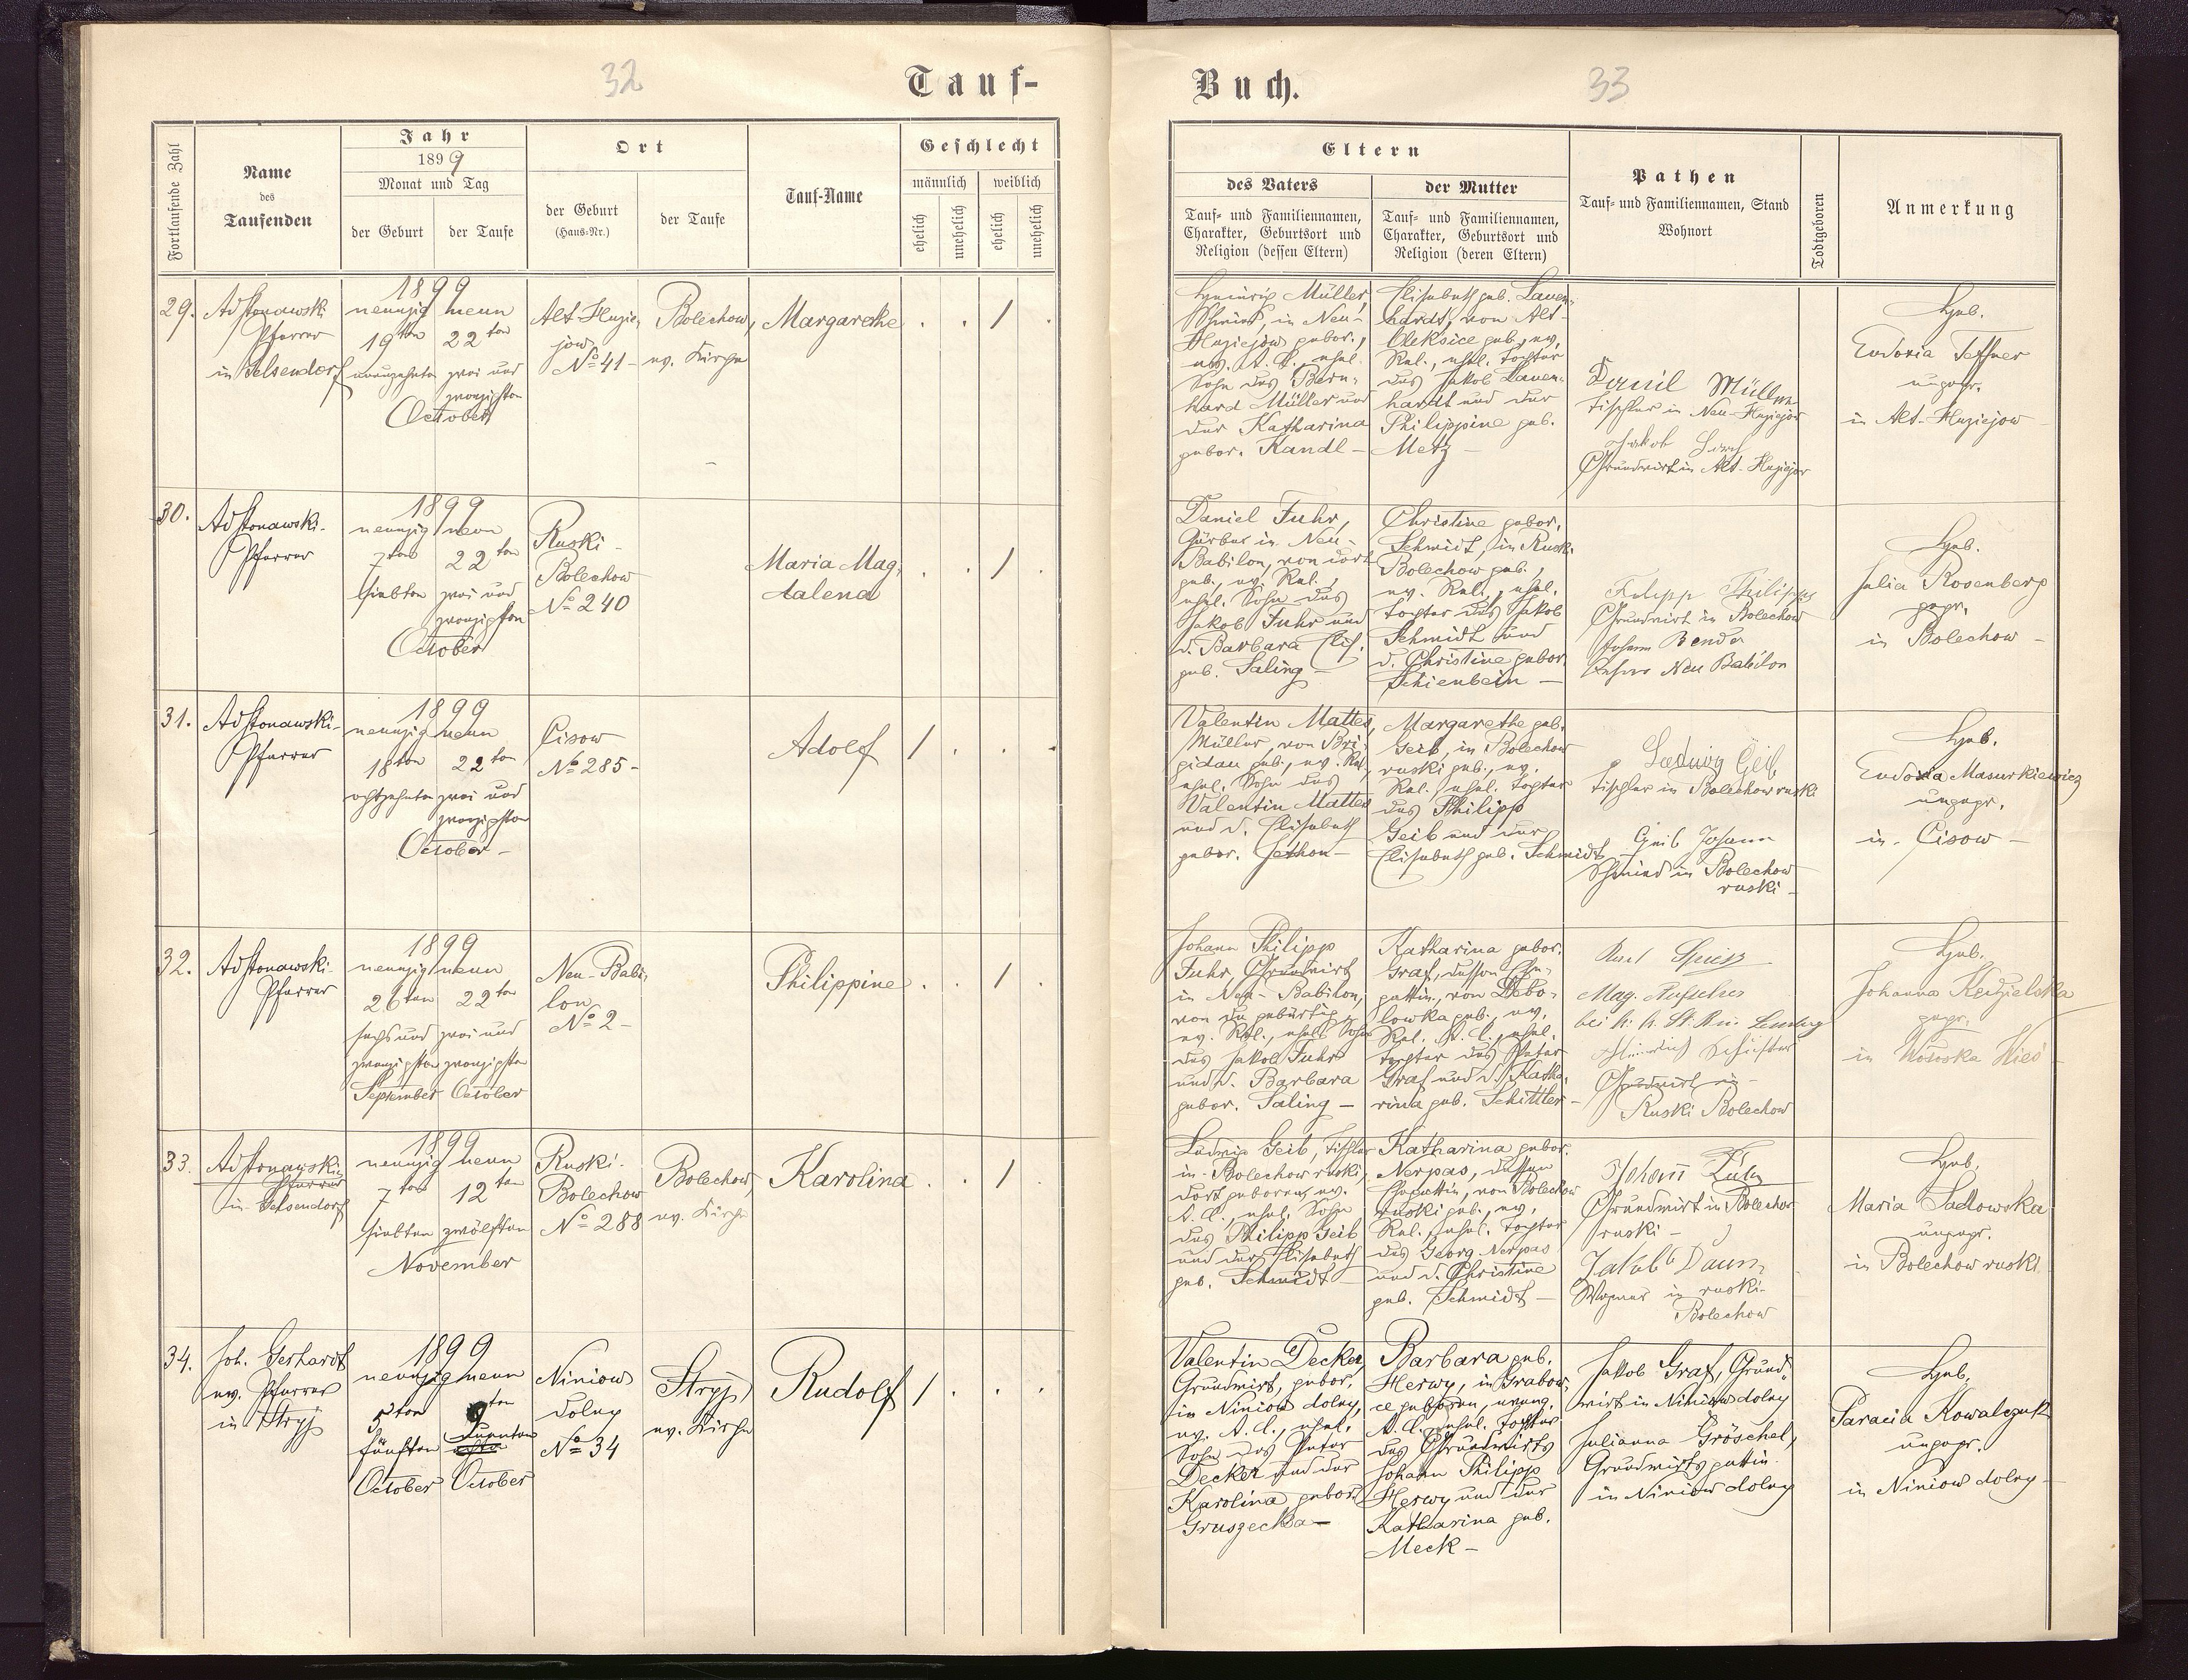 32
Tauf-
Fortlaufende Zahl
Name
des
Taufenden
Jahr
1899
Monat und Tag
der Geburt
der Taufe
Ort
der Geburt
(Haus-Nr.)
der Taufe
Tauf-Name
Geschlecht
männlich
weiblich
ehelich
unehelich
ehelich
unehelich
29.
Pfarrer
in Gelsendorf
1899
neunzig neun
19ten 22ten
neunzehnten zwei und
zwanzigsten
October
Alt-Huzie-
jow
No 41 -
Bolechow,
ev. Kirche
Margarethe
. . / .
30.
Pfarrer
1899
neunzig neun
7ten 22ten
siebten zwei und
zwanzigsten
October
Ruski-
Bolechow
No 240
Maria Mag-
dalena
. . / .
31.
Pfarrer
1899
neunzig neun
18ten 22ten
achtzehnten zwei und
zwanzigsten
October -
Cisow
No 285 -
Adolf
/ . . .
32.
Pfarrer
1899
neunzig neun
26ten 22ten
sechs und zwei und
zwanzigsten zwanzigsten
September October
Neu-Babi-
lon
No 2 -
Philippine
. . / .
33.
Pfarrer
in Gelsendorf
1899
neunzig neun
7ten 12ten
siebten zwölften
November
Ruski-
Bolechow
No 288
Bolechow,
ev. Kirche
Karolina
. . / .
34.
Joh. Gerhardt
ev. Pfarrer
in Stryj
1899
neunzig neun
5ten 9ten
fünften neunten
October October
Niniow
dolny
No 34
Stryj,
ev. Kirche
Rudolf
/ . . .
Buch.
33
Eltern
des Vaters
Tauf- und Familiennamen,
Charakter, Geburtsort und
Religion (dessen Eltern)
der Mutter
Tauf- und Familiennamen,
Charakter, Geburtsort und
Religion (deren Eltern)
Pathen
Tauf- und Familiennamen, Stand
Wohnort
Todtgeboren
Anmerkung
Heinrich Müller,
Schmied, in Neu-
Huziejow gebor.,
ev. A. C., ehel.
Sohn des Bern-
hard Müller und
der Katharina
gebor. Kandl -
Elisabeth geb. Lauen-
hardt, von Alt
Oleksice geb., ev.
Rel., ehel. Tochter
des Jakob Lauen-
hardt und der
Philippine geb.
Metz -
Daniel Müller
Tischler in Neu-Huziejow
Jakob
Grundwirt in Alt-Huziejow
Heb.
Eudoxia Teffner
ungepr.
in Alt-Huziejow
Daniel Fuhr,
Gärber in Neu-
Babilon, von dort
geb., ev. Rel.,
ehel. Sohn des
Jakob Fuhr und
d. Barbara Elis.
geb. Saling -
Christine gebor.
Schmidt, in Ruski-
Bolechow geb.,
ev. Rel., ehel.
Tochter des Jakob
Schmidt und
d. Christine gebor.
Schienbein -
Philipps
Grundwirt in Bolechow
Johann Bender
Lehrer Neu Babilon
Heb.
Julia Rosenberg
gepr.
in Bolechow -
Valentin Mattes,
Müller, von Bri-
gidau geb., ev. Rel.,
ehel. Sohn des
Valentin Mattes
und d. Elisabeth
gebor. Jethon -
Margarethe geb.
Geib, in Bolechow
ruski geb., ev.
Rel., ehel. Tochter
des Philipp
Geib und der
Elisabeth geb. Schmidt
Ludwig Geib
Tischler in Bolechow ruski
Geib Johann
Schmied in Bolechow
ruski -
Heb.
Eudoxia Masurkiewicz
ungepr.
in Cisow -
Johann Philipp
Fuhr, Grundwirt
in Neu-Babilon,
von da gebürtig,
ev. Rel., ehel. Sohn
des Jakob Fuhr
und d. Barbara
gebor. Saling -
Katharina gebor.
Graf, dessen Ehe-
gattin, von Debo-
lowka geb., ev.
Rel. A. C., ehel.
Tochter des Peter
Graf und d. Katha-
rina geb. Schittler -
Karl Spiess
Mag. Aufseher
Grundwirt in
Ruski Bolechow
Heb.
Johanna Kedzielska
gepr.
in
Ludwig Geib, Tischler
in Bolechow ruski,
dort geboren, ev.
A. C., ehel. Sohn
des Philipp Geib
und der Elisabeth
geb. Schmidt -
Katharina gebor.
Nerpas, dessen
Ehegattin, von Bolechow
ruski geb., ev.
Rel., ehel. Tochter
des Georg Nerpas
und d. Christine
geb. Schmidt -
Johann
Grundwirt in Bolechow
ruski -
Jakob Daum
Wagner in ruski-
Bolechow
Heb.
Maria Sadowska
ungepr.
in Bolechow ruski
Valentin Decker,
Grundwirt, gebor.
in Niniow dolny,
ev. A. C., ehel.
Sohn des Peter
Decker und der
Karolina gebor.
Gruszecka -
Barbara geb.
Herwy, in Grabow-
ce geboren, evang.
A. C., ehel. Tochter
des Grundwirts
Johann Philipp
Herwy und der
Katharina geb.
Meck -
Jakob Graf, Grund-
wirt in Niniow dolny
Julianna Gröschel,
Grundwirtsgattin
in Niniow dolny
Heb.
Paracia Kowalczuk
ungepr.
in Niniow dolny -